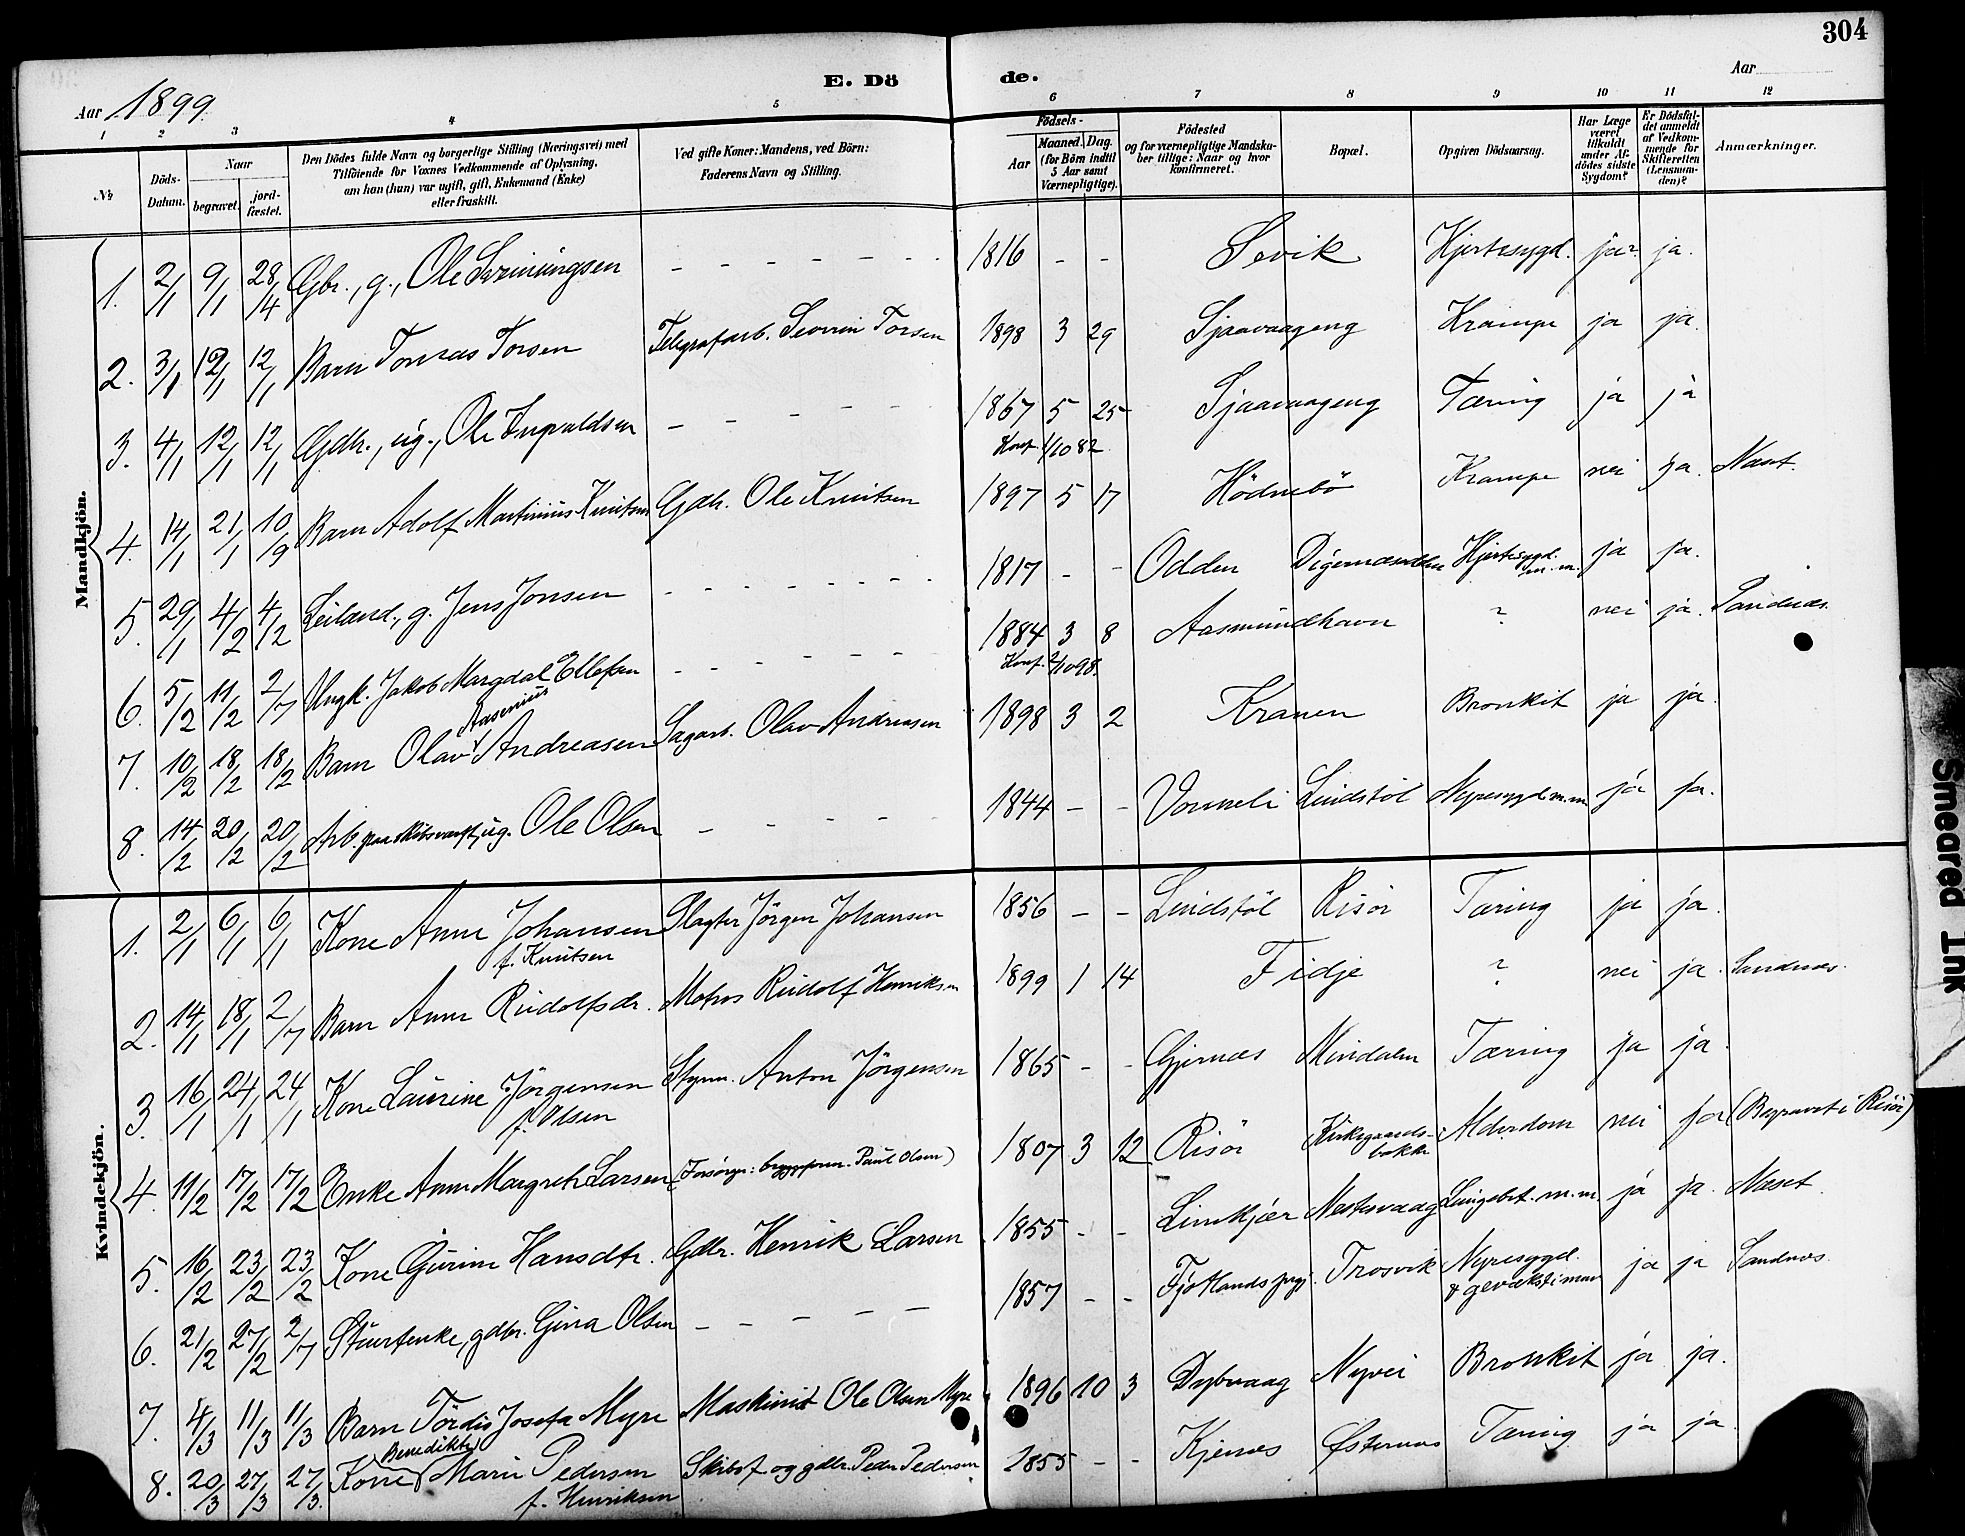 304
E. Döde.
Aar 1899
Aar
1 2 3 4 5 6 7 8 9 10 11 12
№
Döds-Datum.
Naar
begravet. jord-fæstet.
Den Dödes fulde Navn og borgerlige Stilling (Næringsvei) med
Tilföiende for Voxnes Vedkommende af Oplysning,
om han (hun) var ugift, gift, Enkemand (Enke)
eller fraskilt.
Ved gifte Koner: Mandens, ved Börn:
Faderens Navn og Stilling.
Födsels-
Aar
Maaned. Dag.
(for Börn indtil
5 Aar samt
Værnepligtige).
Födested
og for værnepligtige Mandska-
ber tillige: Naar og hvor
konfirmeret.
Bopæl.
Opgiven Dödsaarsag.
Har Læge
været
tilkaldt
under Af-
dödes sidste
Sygdom?
Er Dödsfal-
det anmeldt
af Vedkom-
mende for
Skifteretten
(Lensman-
den)?
Anmærkninger.
Mandkjön.
1. 2/1 9/1 28/4 Gbr., g., Ole Sveinungsen - - - - - - - 1816 - - Sevik Hjertesygd. ja ja.
2. 3/1 12/1 12/1 Barn Tomas Torsen Telegrafarb. Severin Torsen 1898 3 29 Sjaavaageng Krampe ja ja.
3. 4/1 12/1 12/1 Gdb., ug., Ole - - - - - - 1867 5 25 Sjaavaageng Tæring ja ja
Konf. 1/10 82
4. 14/1 21/1 10/9 Barn Adolf Martinius Knutsen Gdb. Ole Knutsen 1897 5 17 Hödnebö Krampe nei ja. Næset.
5. 29/1 4/2 4/12 Leiland., g. Jens Jonsen - - - - - - - 1817 - - Odden Hjertesygd. m.m. ja ja.
6. 5/2 11/2 2/7 Ungk. Jakob Margdal Ellefsen - - - - - - 1884 3 8 Aasmundhavn ? nei ja. Sandnæs.
Konf. 2/10 98.
7. 10/2 18/2 18/2 Barn Olav Aasenius Andreasen Sagarb. Olav Andreasen 1898 3 2 Kranen Bronkit ja ja.
8. 14/2 20/2 20/2 Arb. paa skibsværft, ug. Ole Olsen - - - - - 1844 - - Vonneli Lindstöl Nyresygd. m.m. ja ja.
Kvindekjön.
1. 2/1 6/1 6/1 Kone Anne Johansen Slagter Jörgen Johansen 1856 - - Lindstöl Risör Tæring ja ja.
f. Knutsen
2. 14/1 18/1 2/7 Barn Anne Rudolfsdr. Matros Rudolf Henriksen 1899 1 14 Fidje ? nei ja. Sandnæs.
3. 16/1 24/1 24/1 Kone Laurine Jörgensen Styrm. Anton Jörgensen 1865 - - Gjernæs Mindalen Tæring ja ja.
f. Olsen
4. 11/2 17/2 17/2 Enke Anne Margreth Larsen (Forsörger: Paul Olsen) 1807 3 12 Risör Kirkegaards-bakken Alderdom nei ja (Begravet i Risör)
5. 16/2 23/2 23/2 Kone Gurine Hansdtr. Gdbr. Henrik Larsen 1855 - - Limkjær Nestesvaag Lungebet. m.m. ja ja. Næset.
6. 21/2 27/2 2/7 Stuertenke, gdbr. Gina Olsen - - - - - 1857 - - Fjotlands prgj. Trosvik Nyresygd. ja ja Sandnæs.
7. 4/3 11/3 11/3 Barn Tördis Josefa Myre Maskinist Ole Olsen Myre 1896 10 3 Dybvaag Nyvei Bronkit ja ja.
8. 20/3 27/3 27/3. Kone (Benedikte) Marie Pedersen Skibsf. og gdbr. Peder Pedersen 1855 - - Kjenæs Østernæs Tæring ja ja
f. Henriksen
Smeared Ink